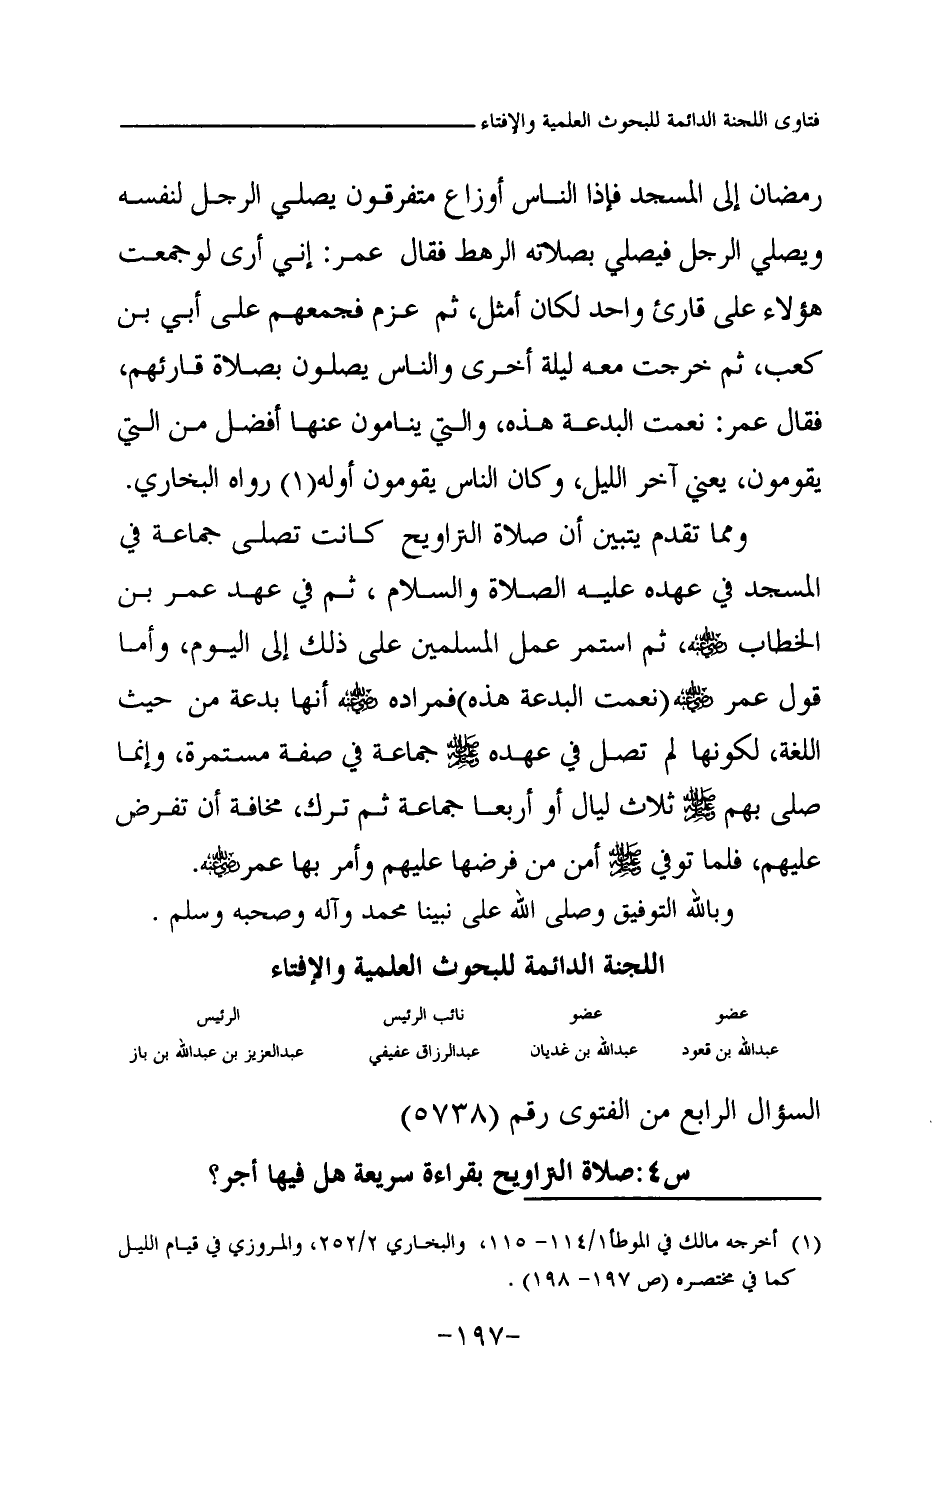 فتاوى اللجنة الدائمة للبحوث العلمية والإفتاء
رمضان إلى المسجد فإذا الناس أوزاع متفرقون يصلي الرجل لنفسه
ويصلي الرجل فيصلي بصلاته الرهط فقال عمر: إني أرى لوجمعت
هؤلاء على قارئ واحد لكان أمثل، ثم عزم فجمعهم على أبي بن
كعب، ثم خرجت معه ليلة أخرى والناس يصلون بصلاة قارئهم،
فقال عمر: نعمت البدعة هذه، والتي ينامون عنها أفضل من التي
يقومون، يعني آخر الليل، وكان الناس يقومون أوله(١) رواه البخاري.
ومما تقدم يتبين أن صلاة التراويح كانت تصلى جماعة في
المسجد في عهده عليه الصلاة والسلام ، ثم في عهد عمر بن
الخطاب رضي الله عنه، ثم استمر عمل المسلمين على ذلك إلى اليوم، وأما
قول عمر رضي الله عنه(نعمت البدعة هذه)فمراده رضي الله عنه أنها بدعة من حيث
اللغة، لكونها لم تصل في عهده ﷺ جماعة في صفة مستمرة، وإنما
صلى بهم ﷺ ثلاث ليال أو أربعا جماعة ثم ترك، مخافة أن تفرض
عليهم، فلما توفي ﷺ أمن من فرضها عليهم وأمر بها عمر رضي الله عنه.
وبالله التوفيق وصلى الله على نبينا محمد وآله وصحبه وسلم .
اللجنة الدائمة للبحوث العلمية والإفتاء
عضو عضو نائب الرئيس الرئيس
عبدالله بن قعود عبدالله بن غديان عبدالرزاق عفيفي عبدالعزيز بن عبدالله بن باز
السؤال الرابع من الفتوى رقم (٥٧٣٨)
س٤:صلاة التراويح بقراءة سريعة هل فيها أجر؟
(١) أخرجه مالك في الموطأ١/١١٤- ١١٥، والبخاري ٢/٢٥٢، والمروزي في قيام الليل
كما في مختصره (ص ١٩٧- ١٩٨) .
-١٩٧-